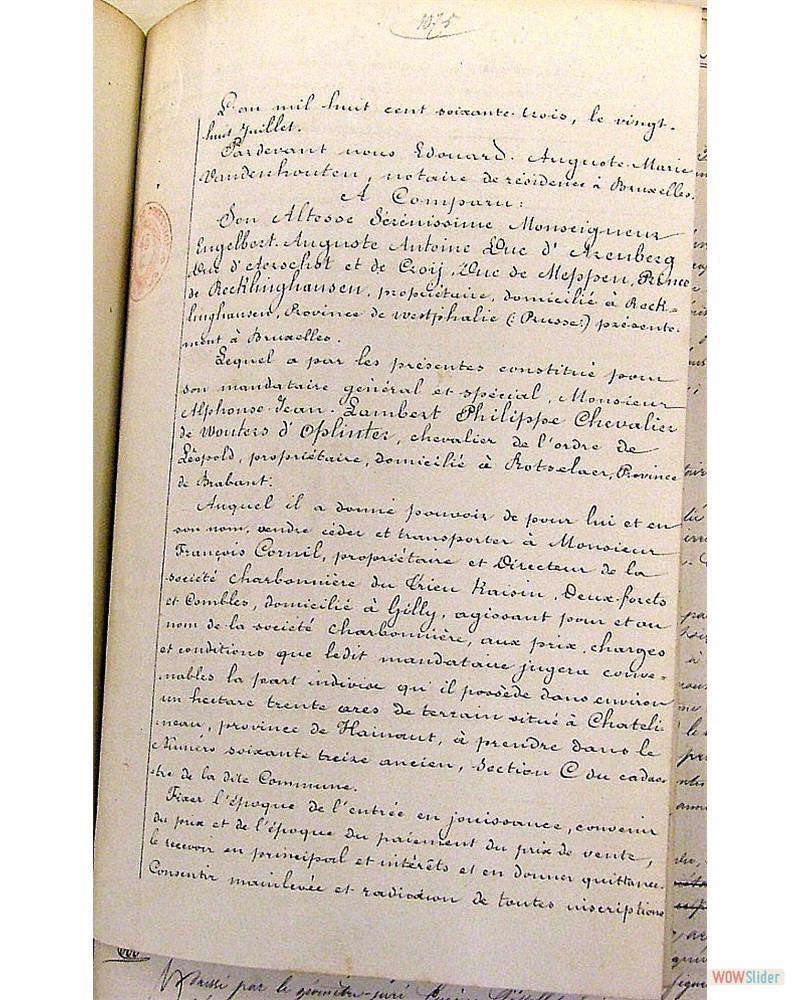 1075
L'an mil huit cent soixante-trois, le vingt-
huit Juillet.
Pardevant nous Edouard-Auguste-Marie
Vandenhouten, notaire de résidence à Bruxelles.
A Comparu:
Son Altesse Sérénissime Monseigneur
Engelbert-Auguste Antoine Duc d'Arenberg
Duc d'Aerschot et de Croij, Duc de Meppen, Prince
de Recklinghausen, propriétaire, domicilié à Reck-
linghausen, Province de Westphalie (: Prusse:) présente-
ment à Bruxelles.
Lequel a par les présentes constitué pour
son mandataire général et spécial, Monsieur
Alphonse-Jean-Lambert Philippe Chevalier
de Wouters d'Oplinter, chevalier de l'ordre de
Léopold, propriétaire, domicilié à Rotselaer, Province
de Brabant:
Auquel il a donné pouvoir de pour lui et en
son nom, vendre céder et transporter à Monsieur
François Cornil, propriétaire et Directeur de la
société charbonnière du Trieu Kaisin, Deux forets
et Combles, domicilié à Gilly, agissant pour et au
nom de la société charbonnière, aux prix, charges
et conditions que ledit mandataire jugera conve-
nables la part indivise qu'il possède dans environ
un hectare trente ares de terrain situé à Chateli-
neau, province de Hainaut, à prendre dans le
Numéro soixante treize ancien, Section C du cadas-
tre de la dite Commune.
Fixer l'époque de l'entrée en jouissance, convenir
du prix et de l'époque du paiement du prix de vente,
le recevoir en principal et intérêts et en donner quittance.
Consentir mainlevée et radiation de toutes inscriptions
par le géomètre-juré
WOWSlider